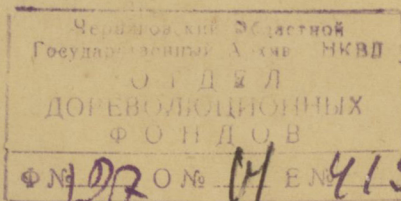 Черниговский Областной
Государственный Архив НКВД
ОТДЕЛ
ДОРЕВОЛЮЦИОННЫХ
ФОНДОВ
Ф № 127 О № Е №